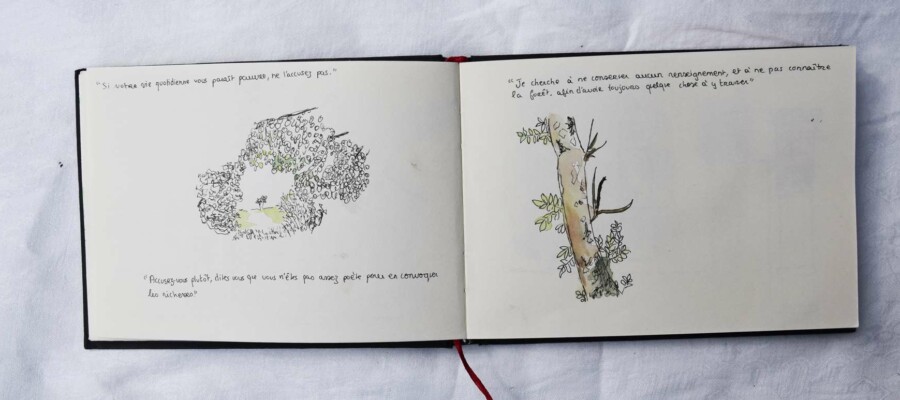 "Si votre vie quotidienne vous paraît pauvre, ne l'accusez pas."
"Accusez-vous plutôt, dites vous que vous n'êtes pas assez poète pour en convoquer
les richesses"
"Je cherche à ne conserver aucun renseignement, et à ne pas connaître
la forêt, afin d'avoir toujours quelque chose à y trouver"